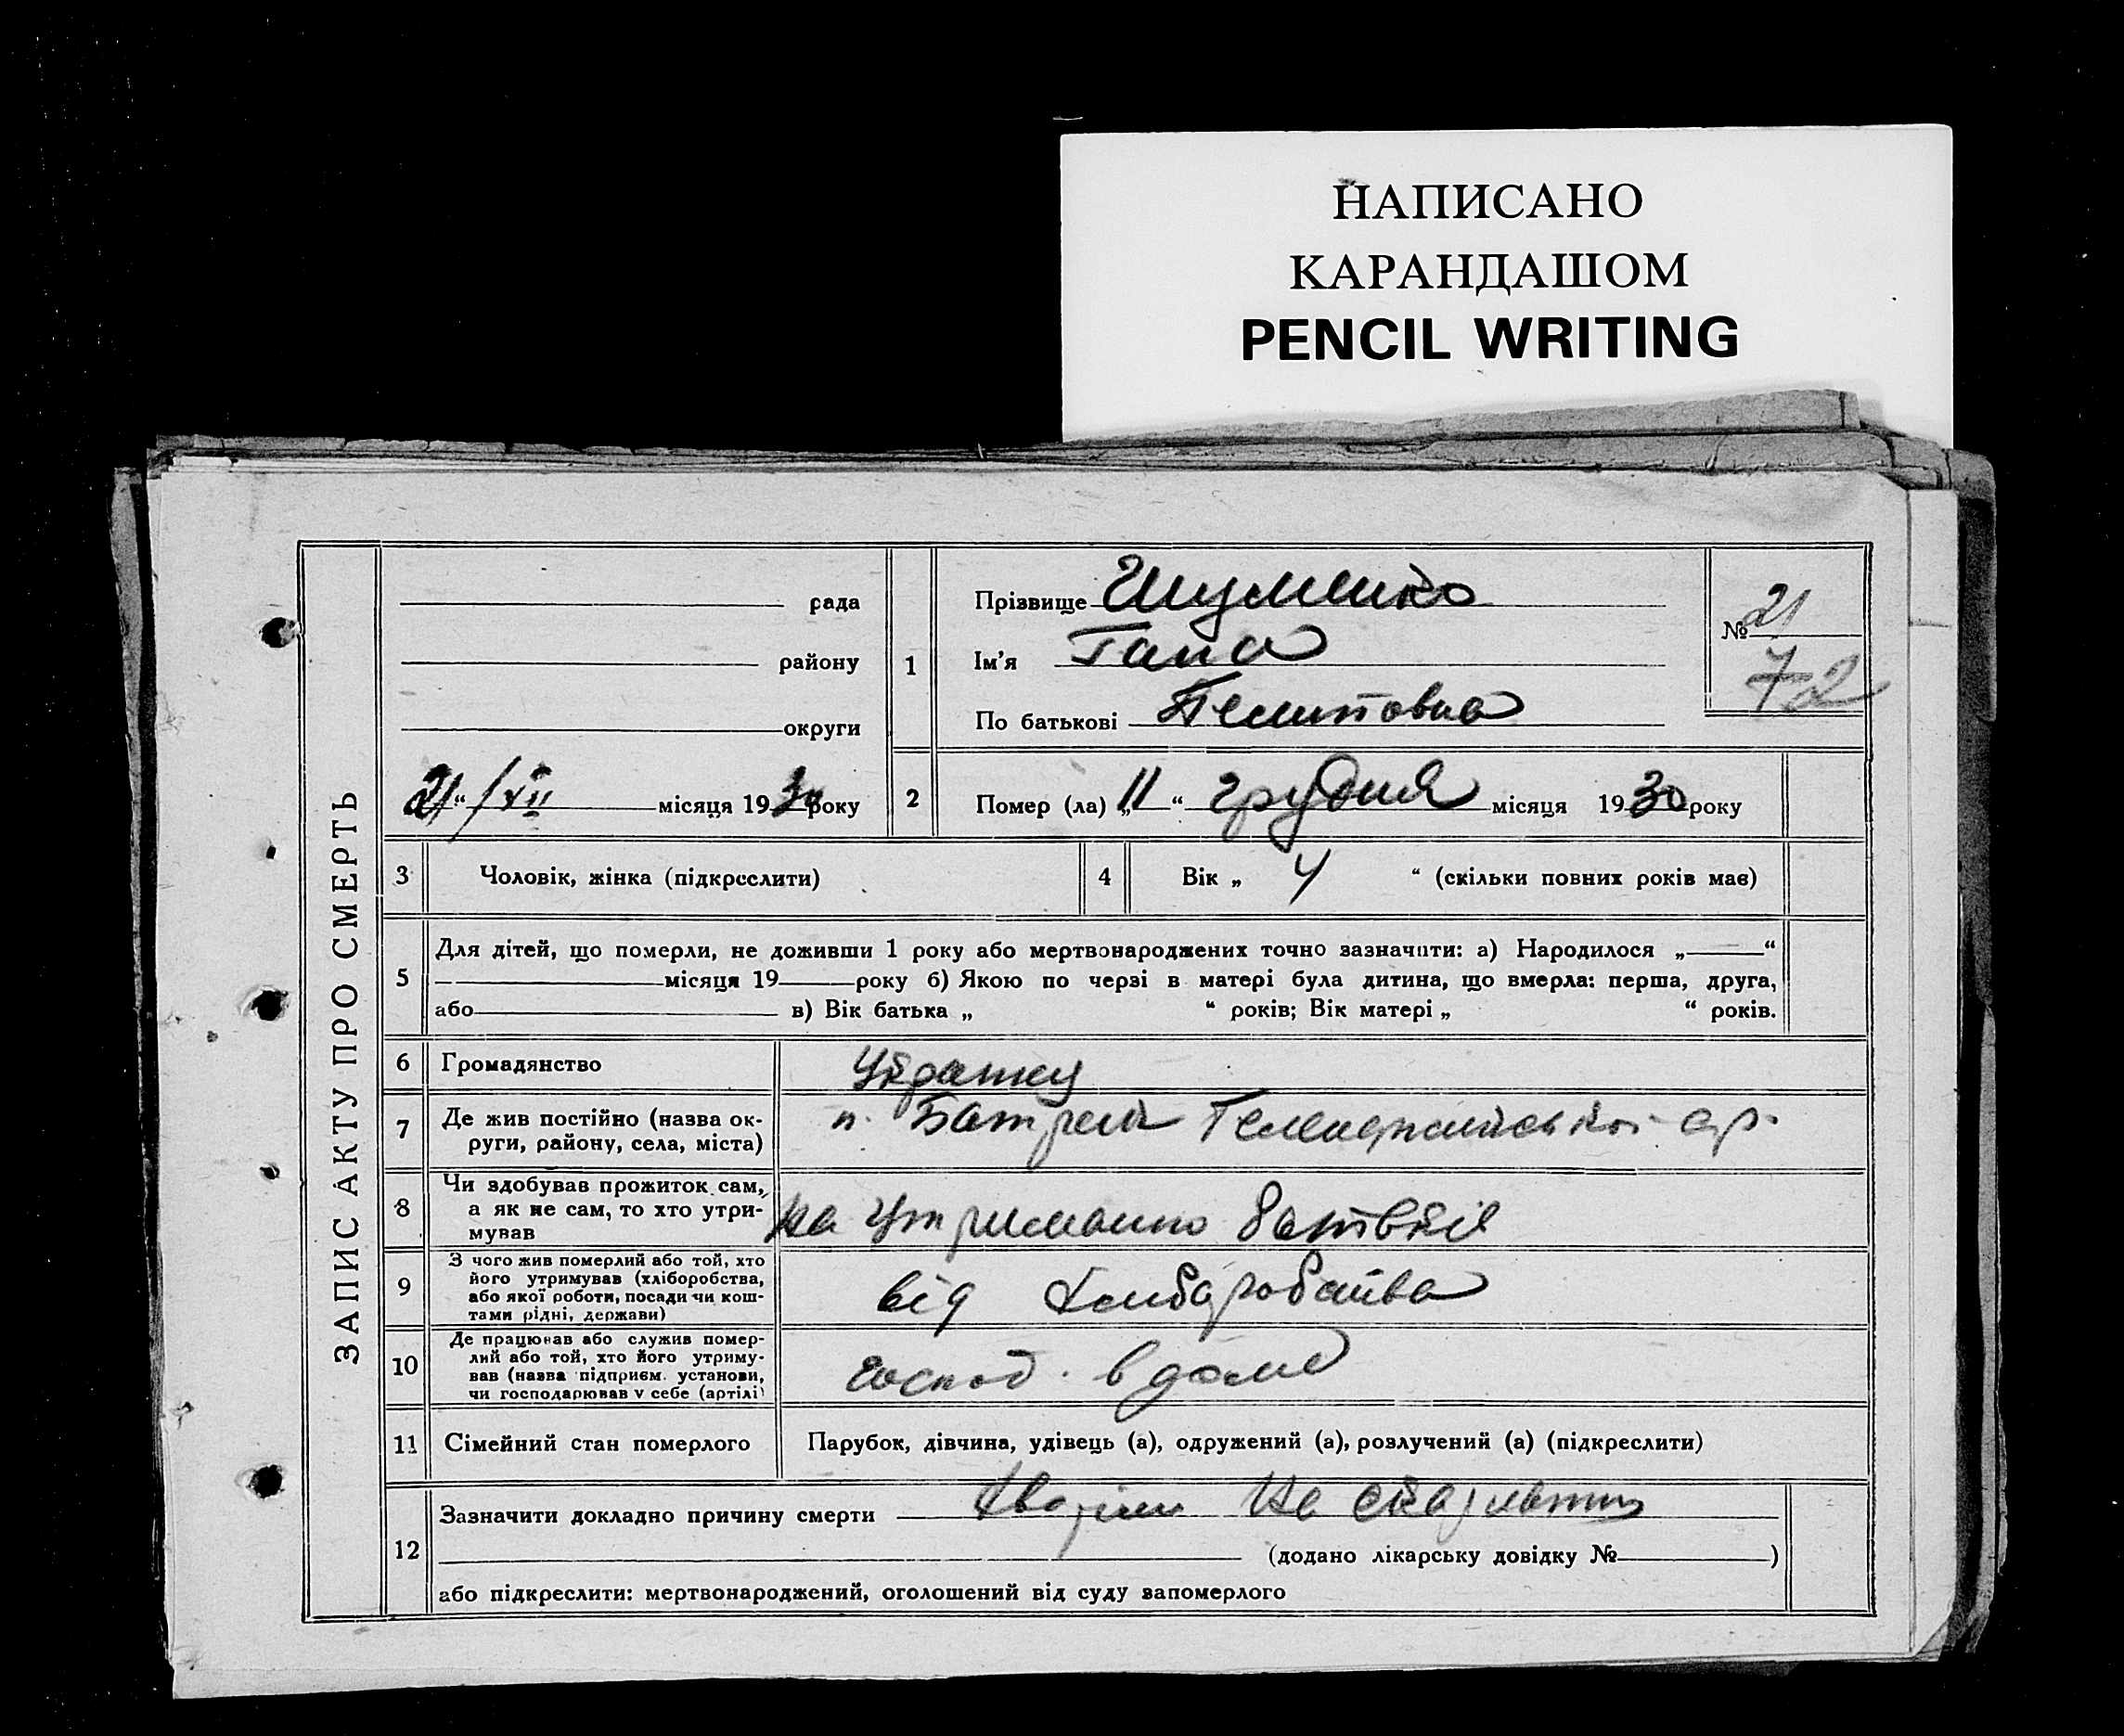 НАПИСАНО
КАРАНДАШОМ
PENCIL WRITING
ЗАПИС АКТУ ПРО СМЕРТЬ
рада
району
округи
21 “ /XII місяця 1930 року
1
Прізвище Шуменко
Ім’я Гапа
По батькові
№ 21
72
2 Помер (ла) „11“ грудня місяця 1930 року
3 Чоловік, жінка (підкреслити)
4 Вік „ 4 “ (скільки повних років має)
5 Для дітей, що померли, не доживши 1 року або мертвонароджених точно зазначити: а) Народилося „ “
місяця 19 року б) Якою по черзі в матері була дитина, що вмерла: перша, друга,
або в) Вік батька „ “ років; Вік матері „ “ років.
6 Громадянство
7 Де жив постійно (назва ок-
руги, району, села, міста)
8 Чи здобував прожиток сам,
а як не сам, то хто утри-
мував
на утриманню батьків
9 З чого жив померлий або той, хто
його утримував (хліборобства,
або якої роботи, посади чи кош-
тами рідні, держави)
від хліборобства
10 Де працював або служив помер-
лий або той, хто його утриму-
вав (назва підприєм. установи,
чи господарював у себе (артілі)
господ. в дома
11 Сімейний стан померлого
Парубок, дівчина, удівець (а), одружений (а), розлучений (а) (підкреслити)
12 Зазначити докладно причину смерти на скарлятину
(додано лікарську довідку № )
або підкреслити: мертвонароджений, оголошений від суду запомерлого